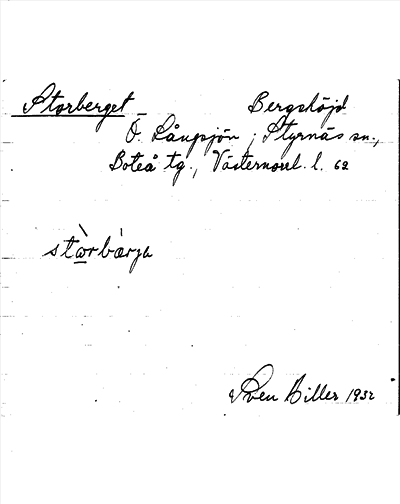 Storberget – Bergshöjd
Ö. Långsjön, Styrnäs sn.,
Boteå tg., Västernorrl. l. 62
stòrbæ̀rja
Sven Biller 1932